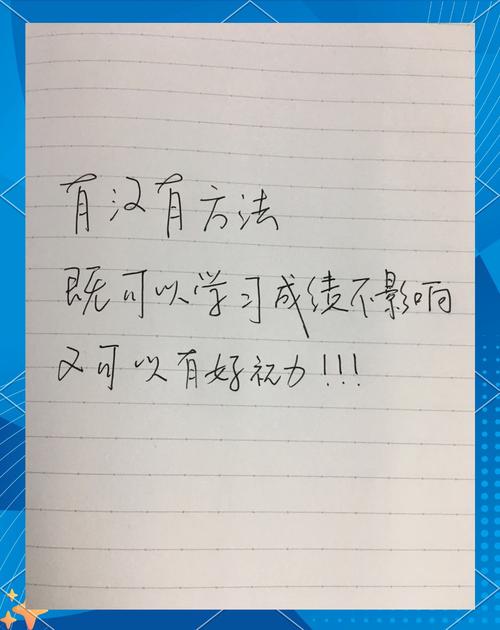 有没有方法
既可以学习成绩不影响
又可以有好视力!!!